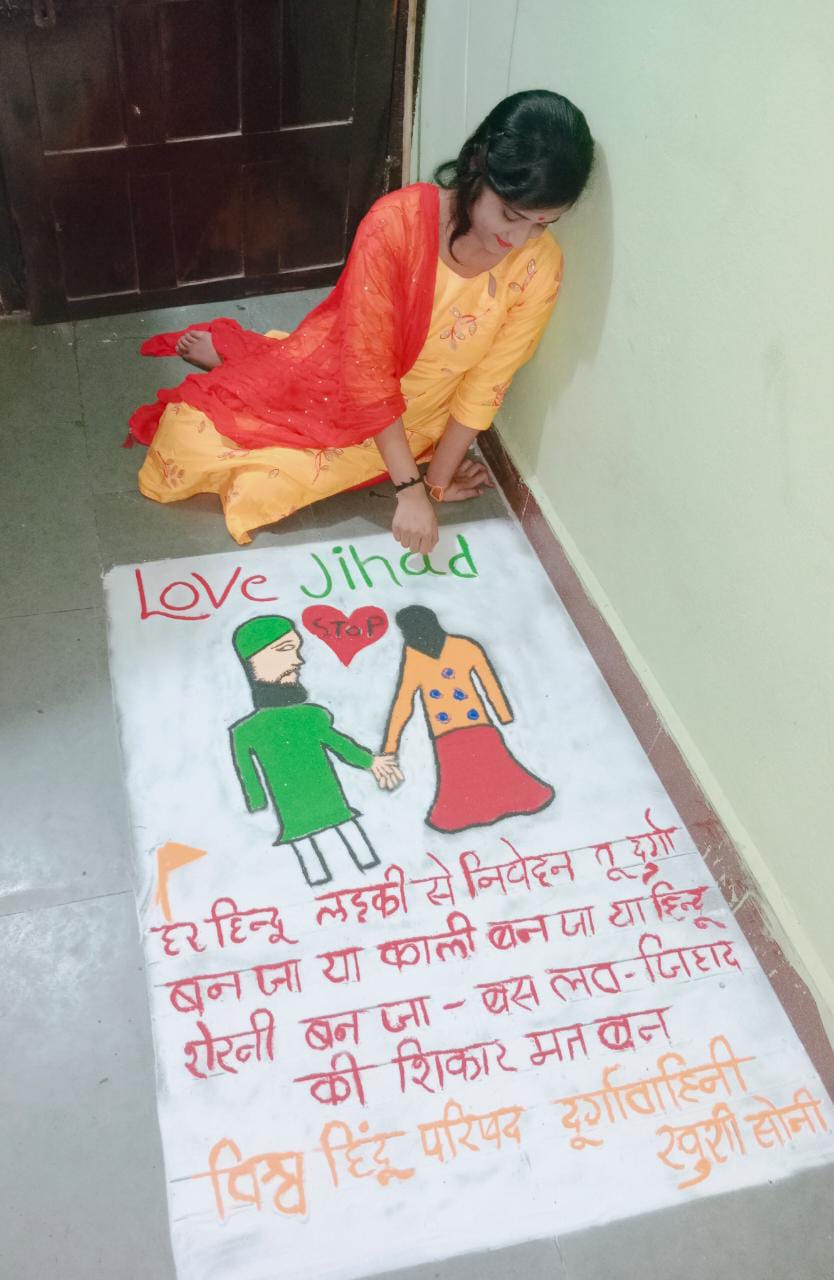 Love Jihad
STOP
हर हिन्दू लड़की से निवेदन तू दुर्गा
बन जा या काली बन जा या हिन्दू
शेरनी बन जा - बस लव-जिहाद
की शिकार मत बन
विश्व हिंदू परिषद दूर्गावाहिनी
खुशी सोनी